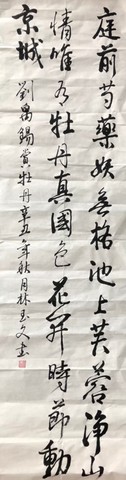 庭前芍藥妖無格池上芙蓉淨少
情唯有牡丹真國色花開時節動
京城
劉禹錫賞牡丹辛丑年秋月林玉文書